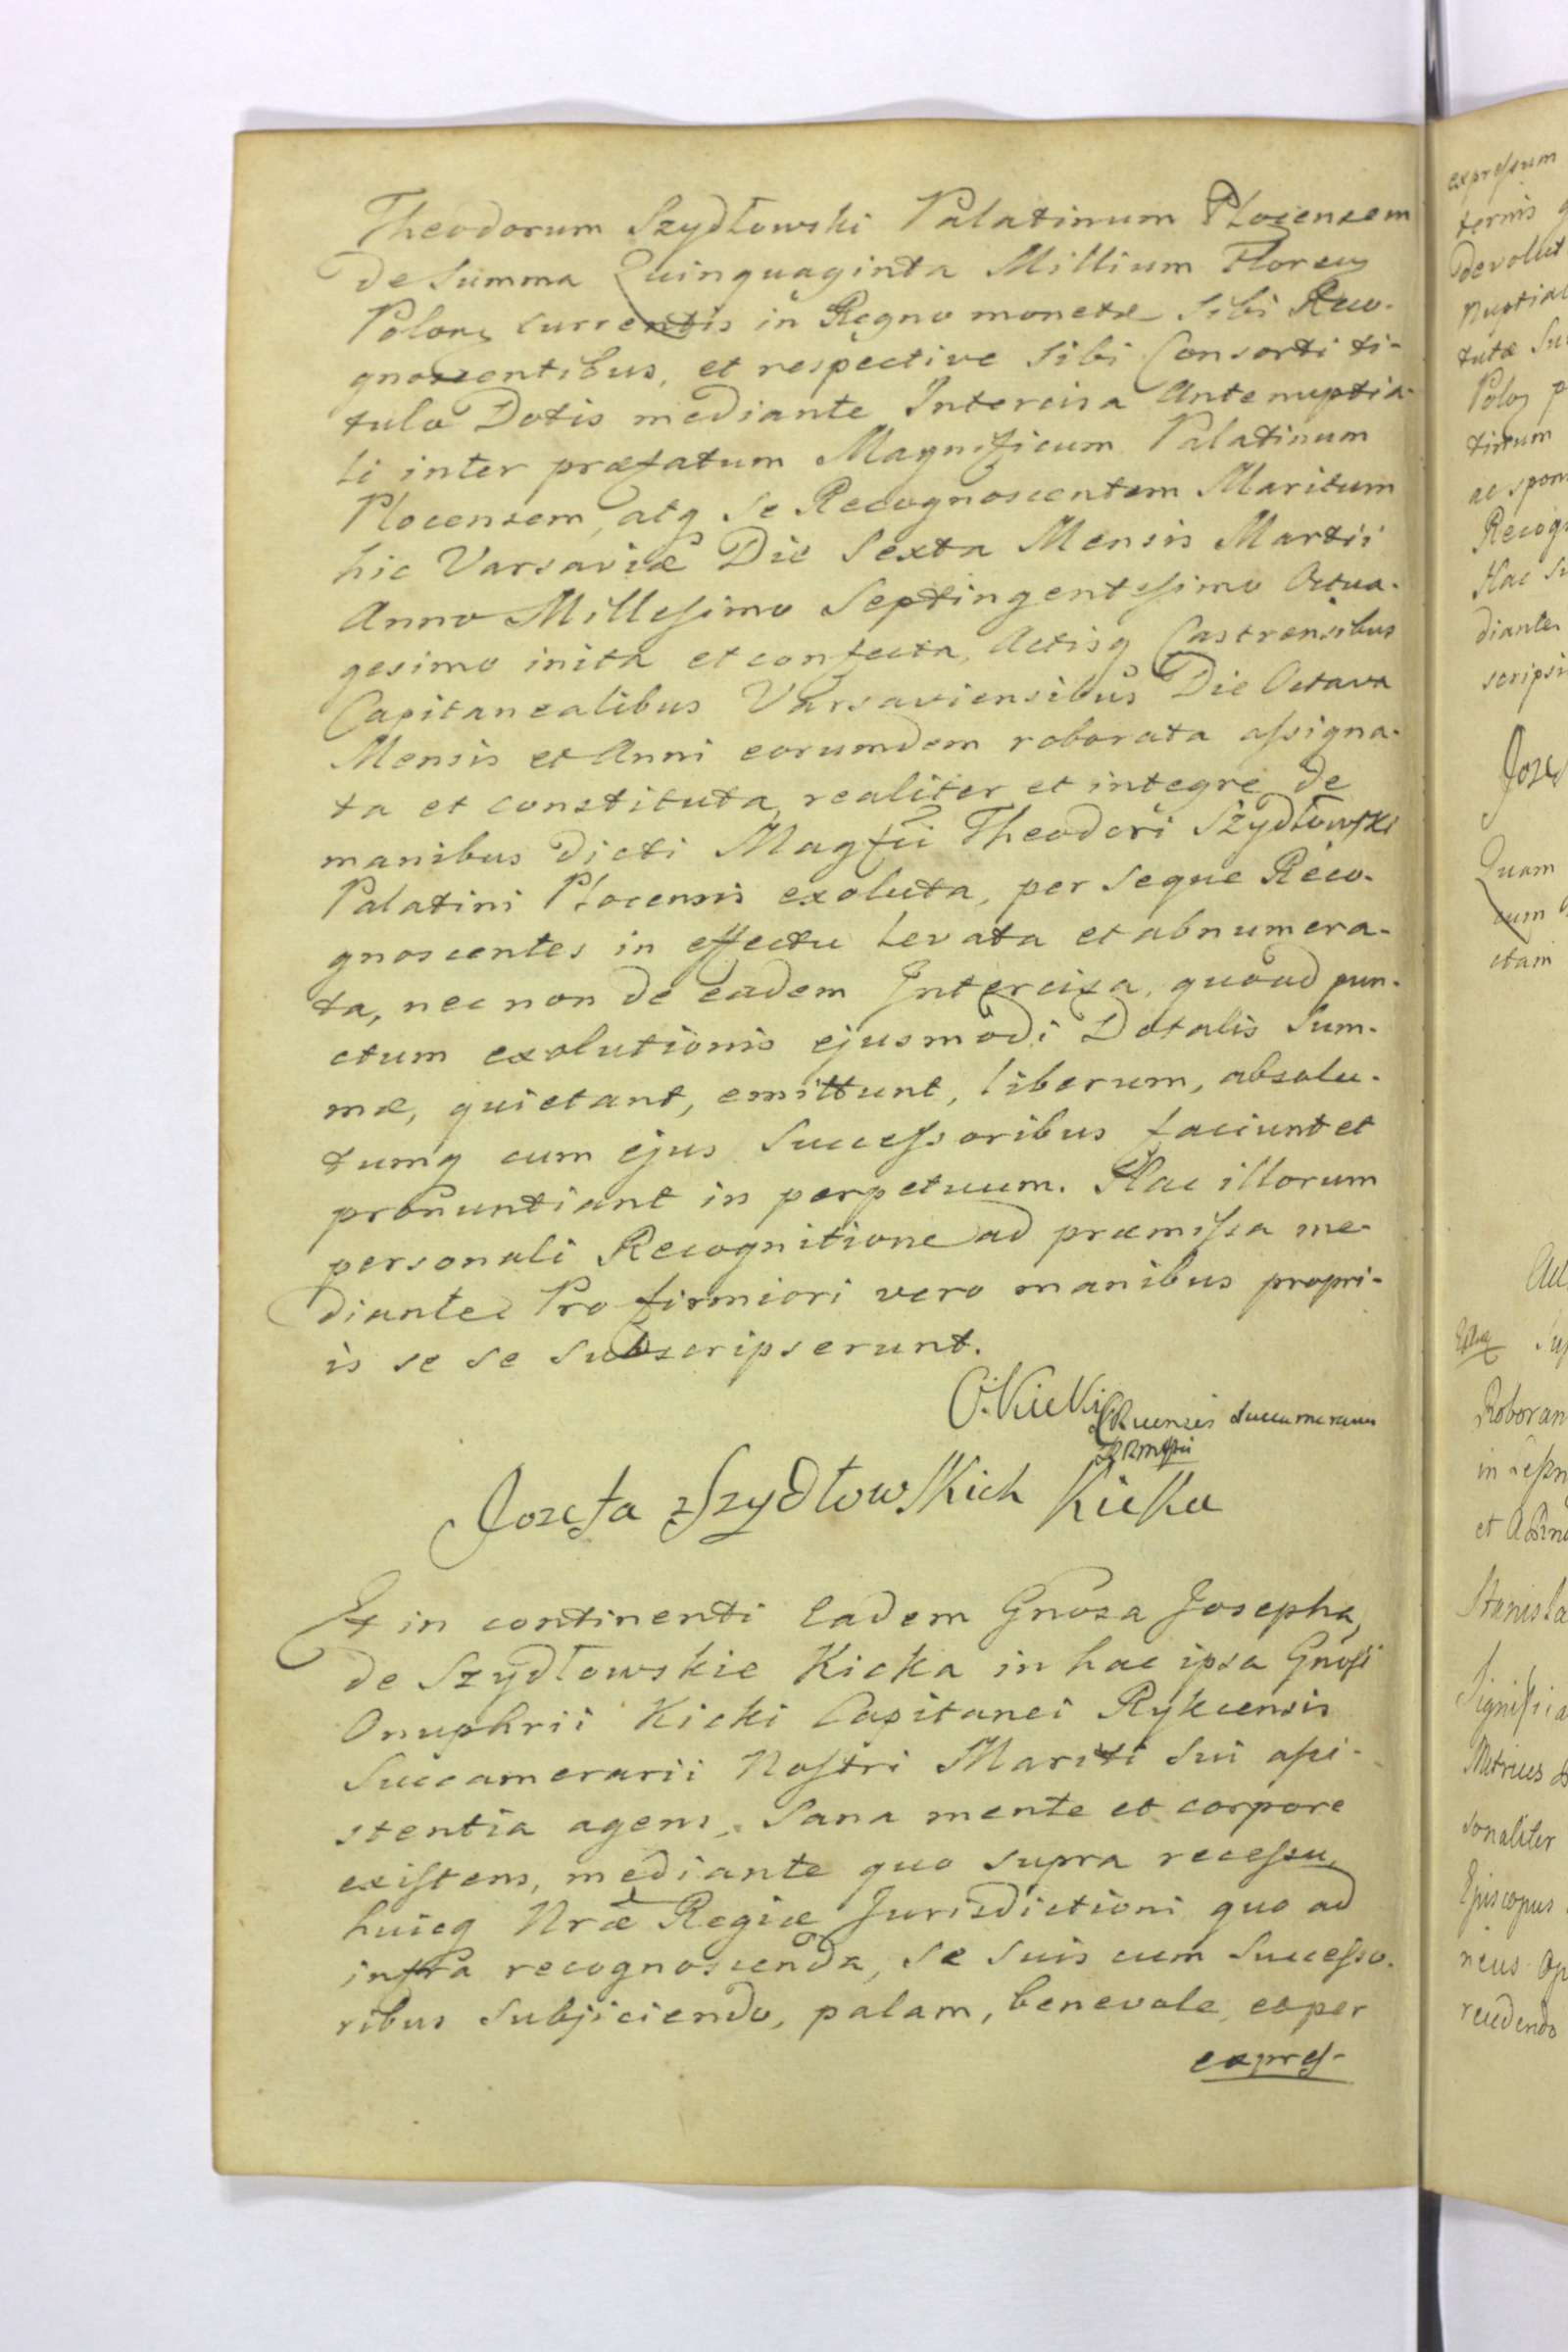 Theodorum Szydłowski Palatinum Plocensem
de Summa Quinquaginta Millium Floreny
Polony currentis in Regno monetæ Sibi Reco-
gnoscentibus, et respective Sibi Consorti ti-
tulo Dotis mediante Intercisa Antenuptia-
li inter præfatum Magnificum Palatinum
Plocensem, atq Se Recognoscentem Maritum
hic Varsaviæ Die Sexta Mensis Martii
Anno Millesimo Septingentesimo Octua-
gesimo inita et confecta, Actisq Castrensibus
Capitanealibus Varsaviensibus Die Octava
Mensis et Anni eorumdem roborata assigna-
ta et constituta, realiter et integre de
manibus dicti Magfci Theodori Szydłowski
Palatini Plocensis exoluta, per Seque Reco-
gnoscentes in effectu levata et abnumera-
ta, nec non de eadem Intercisa, quoad pun-
ctum exolutionis ejusmodi Dotalis Sum-
mæ, quietant, emittunt, liberum, absolu-
tumq cum ejus Successoribus faciunt et
pronuntiant in perpetuum. Hac illorum
personali Recognitione ad præmissa me-
diante Pro firmiori vero manibus propri-
is se se subscripserunt.
O. Kicki Succamerarius
Jozefa z Szydłowskich Kicka
Et in continenti Eadem Gnosa Josepha
de Szydłowskie Kicka in hac ipsa Gnosi
Onuphrii Kicki Capitanei Rykcensis
Succamerarii Nostri Mariti Sui assi-
stentia agens, Sana mente et corpore
existens, mediante quo supra recessu,
huicq Nræ Regiæ Jurisdictioni quo ad
infra recognoscenda, Se Suis cum Successo-
ribus Subjiciendo, palam, benevole, et per
expres-
expressum
ternis
devolut
nuptial
tutæ Su
Polon p
tinum
ac spon
Recog
Hac
diante
scripsi
Joze
Quam
cum
etam
Roboran
in
et
Stanisla
Signifi
Metrices
sonaliter
Episcopus
recedendo